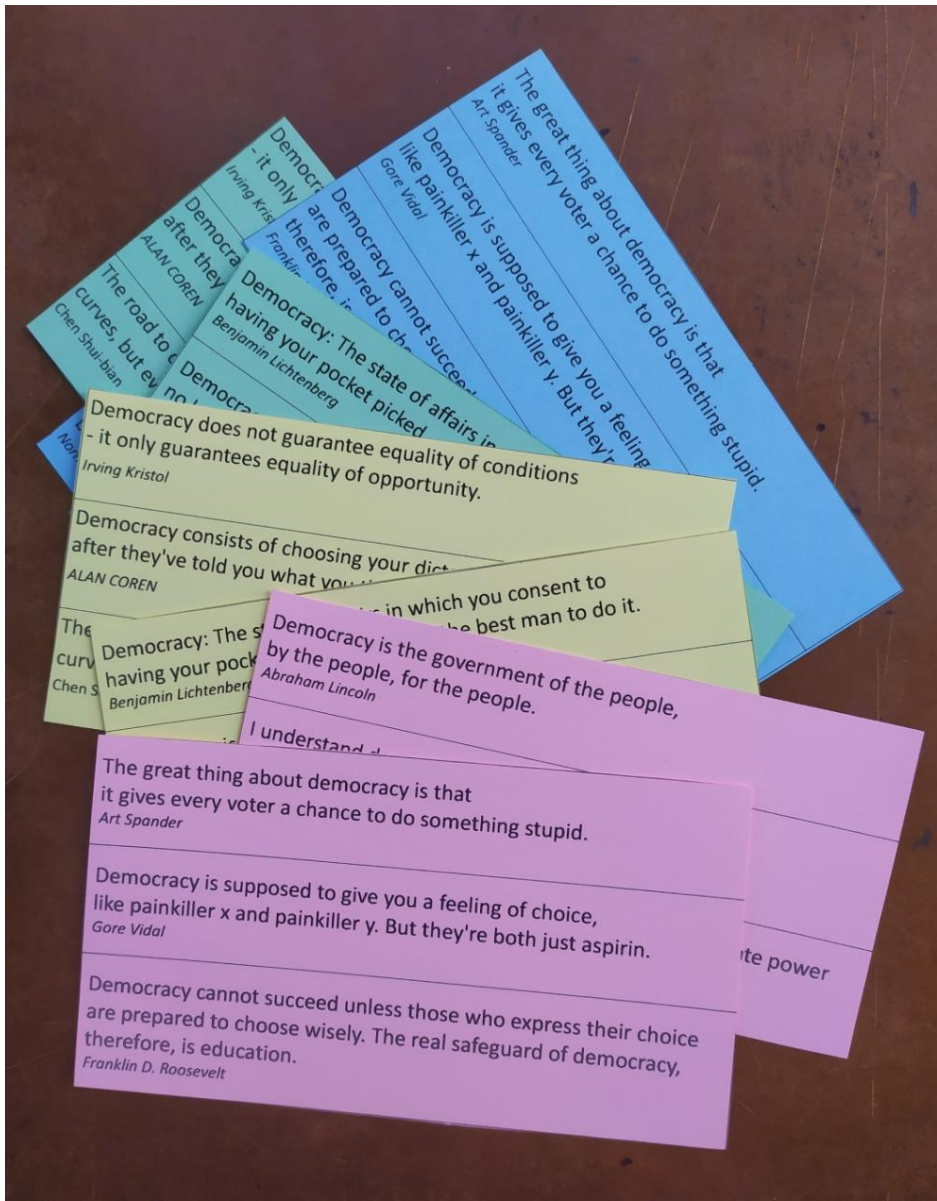 The great thing about democracy is that
it gives every voter a chance to do something stupid.
Art Spander
Democracy is supposed to give you a feeling
like painkiller x and painkiller y. But they're
Gore Vidal
Democracy cannot succeed
are prepared to
therefore, is
Franklin
- it only
Irving
after they
ALAN COREN
The road to
curves, but
Chen Shui-bian
Democracy: The state of affairs in
having your pocket picked
Benjamin Lichtenberg
Democracy does not guarantee equality of conditions
- it only guarantees equality of opportunity.
Irving Kristol
Democracy consists of choosing your
after they've told you what
ALAN COREN
The
Chen
in which you consent to
best man to do it.
Democracy: The
having your
Benjamin Lichtenberg
Democracy is the government of the people,
by the people, for the people.
Abraham Lincoln
I understand
power
The great thing about democracy is that
it gives every voter a chance to do something stupid.
Art Spander
Democracy is supposed to give you a feeling of choice,
like painkiller x and painkiller y. But they're both just aspirin.
Gore Vidal
Democracy cannot succeed unless those who express their choice
are prepared to choose wisely. The real safeguard of democracy,
therefore, is education.
Franklin D. Roosevelt